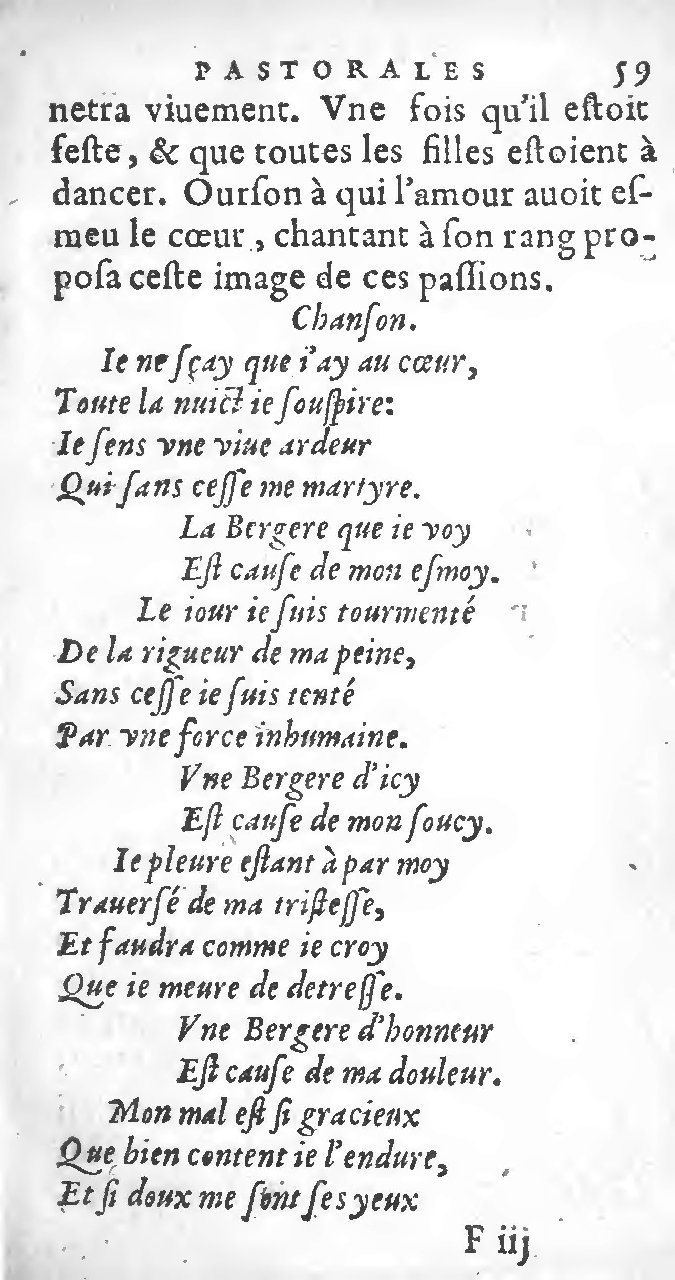 PASTORALES 59
netra viuement. Vne fois qu'il eſtoit
feſte, & que toutes les filles eſtoient à
dancer. Ourſon à qui l'amour auoit eſ-
meu le cœur, chantant à ſon rang pro-
poſa ceſte image de ces paſſions.
Chanſon.
Ie ne ſçay que i'ay au cœur,
Toute la nuict ie ſouſpire:
Ie ſens vne viue ardeur
Qui ſans ceſſe me martyre.
La Bergere que ie voy
Eſt cauſe de mon eſmoy.
Le iour ie ſuis tourmenté
De la rigueur de ma peine,
Sans ceſſe ie ſuis tenté
Par vne force inhumaine.
Vne Bergere d'icy
Eſt cauſe de mon ſoucy.
Ie pleure eſtant à par moy
Trauerſé de ma triſteſſe,
Et faudra comme ie croy
Que ie meure de detreſſe.
Vne Bergere d'honneur
Eſt cauſe de ma douleur.
Mon mal eſt ſi gracieux
Que bien content ie l'endure,
Et ſi doux me ſont ſes yeux
F iij